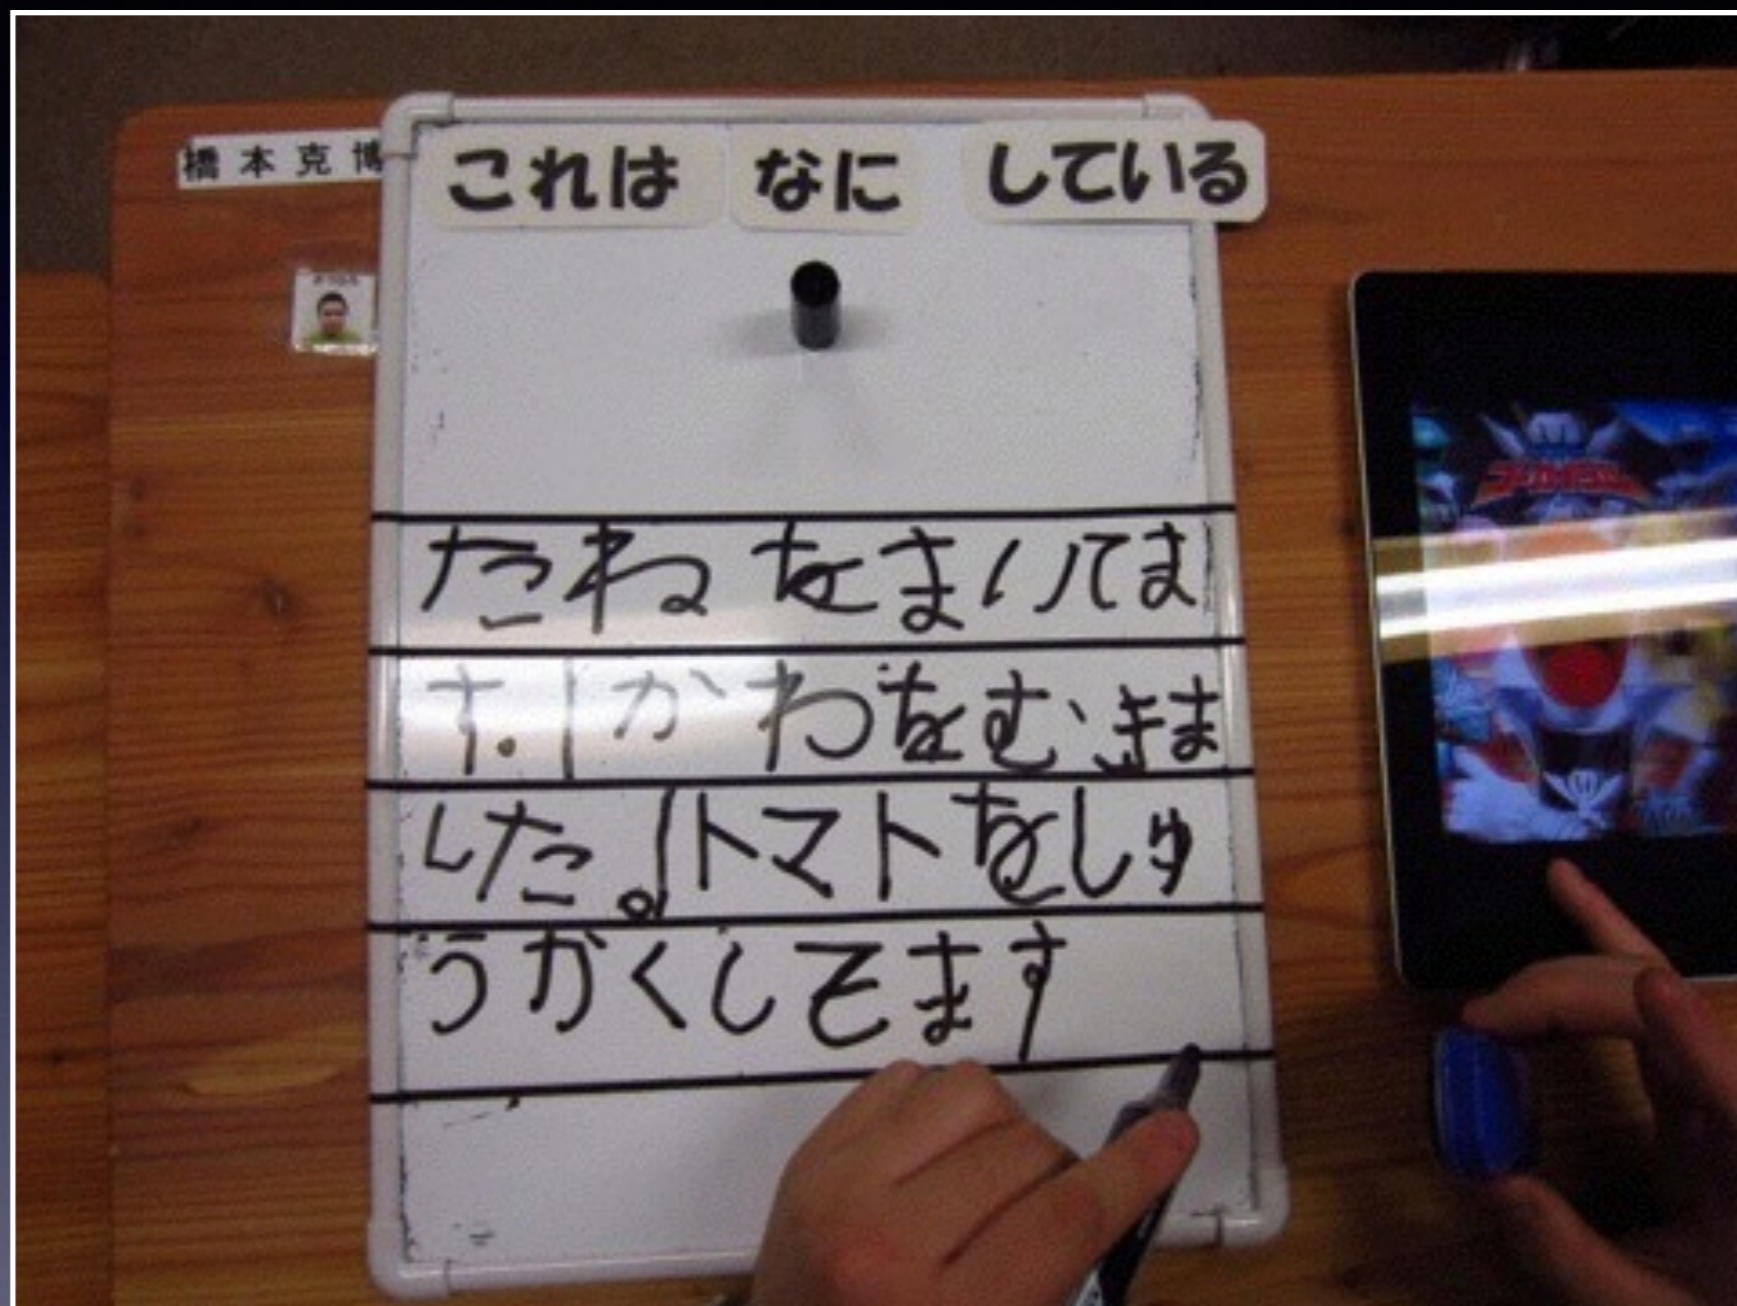 橋本克博
これは なに している
たねをまいてま
す。かわをむきま
した。トマトをしゅ
うかくしてます